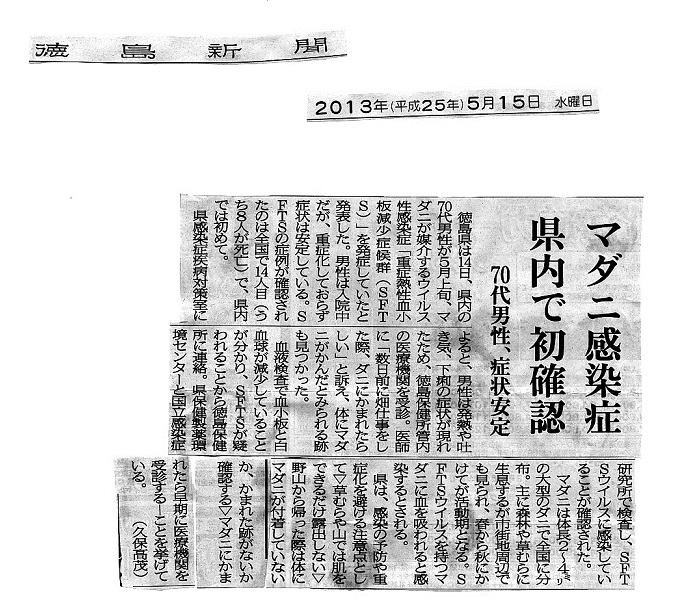 徳島新聞
2013年(平成25年)5月15日 水曜日
マダニ感染症
県内で初確認
70代男性、症状安定
徳島県は14日、県内の
70代男性が5月上旬、マ
ダニが媒介するウイルス
性感染症「重症熱性血小
板減少症候群(SFT
S)」を発症していたと
発表した。男性は入院中
だが、重症化しておらず
症状は安定している。S
FTSの症例が確認され
たのは全国で14人目(う
ち8人が死亡)で、県内
では初めて。
県感染症疾病対策室に
よると、男性は発熱や吐
き気、下痢の症状が現れ
たため、徳島保健所管内
の医療機関を受診。医師
に「数日前に畑仕事をし
た際、ダニにかまれたら
しい」と訴え、体にマダ
ニがかんだとみられる跡
も見つかった。
血液検査で血小板と白
血球が減少していること
が分かり、SFTSが疑
われることから徳島保健
所に連絡。県保健製薬環
境センターと国立感染症
研究所で検査し、SFT
Sウイルスに感染してい
ることが確認された。
マダニは体長約2〜4㍉
の大型のダニで全国に分
布。主に森林や草むらに
生息するが市街地周辺で
も見られ、春から秋にか
けてが活動期となる。S
FTSウイルスを持つマ
ダニに血を吸われると感
染するとされる。
県は、感染の予防や重
症化を避ける注意点とし
て▽草むらや山では肌を
できるだけ露出しない▽
野山から帰った際は体に
マダニが付着していない
か、かまれた跡がないか
確認する▽マダニにかま
れたら早期に医療機関を
受診する―ことを挙げて
いる。 (久保高茂)